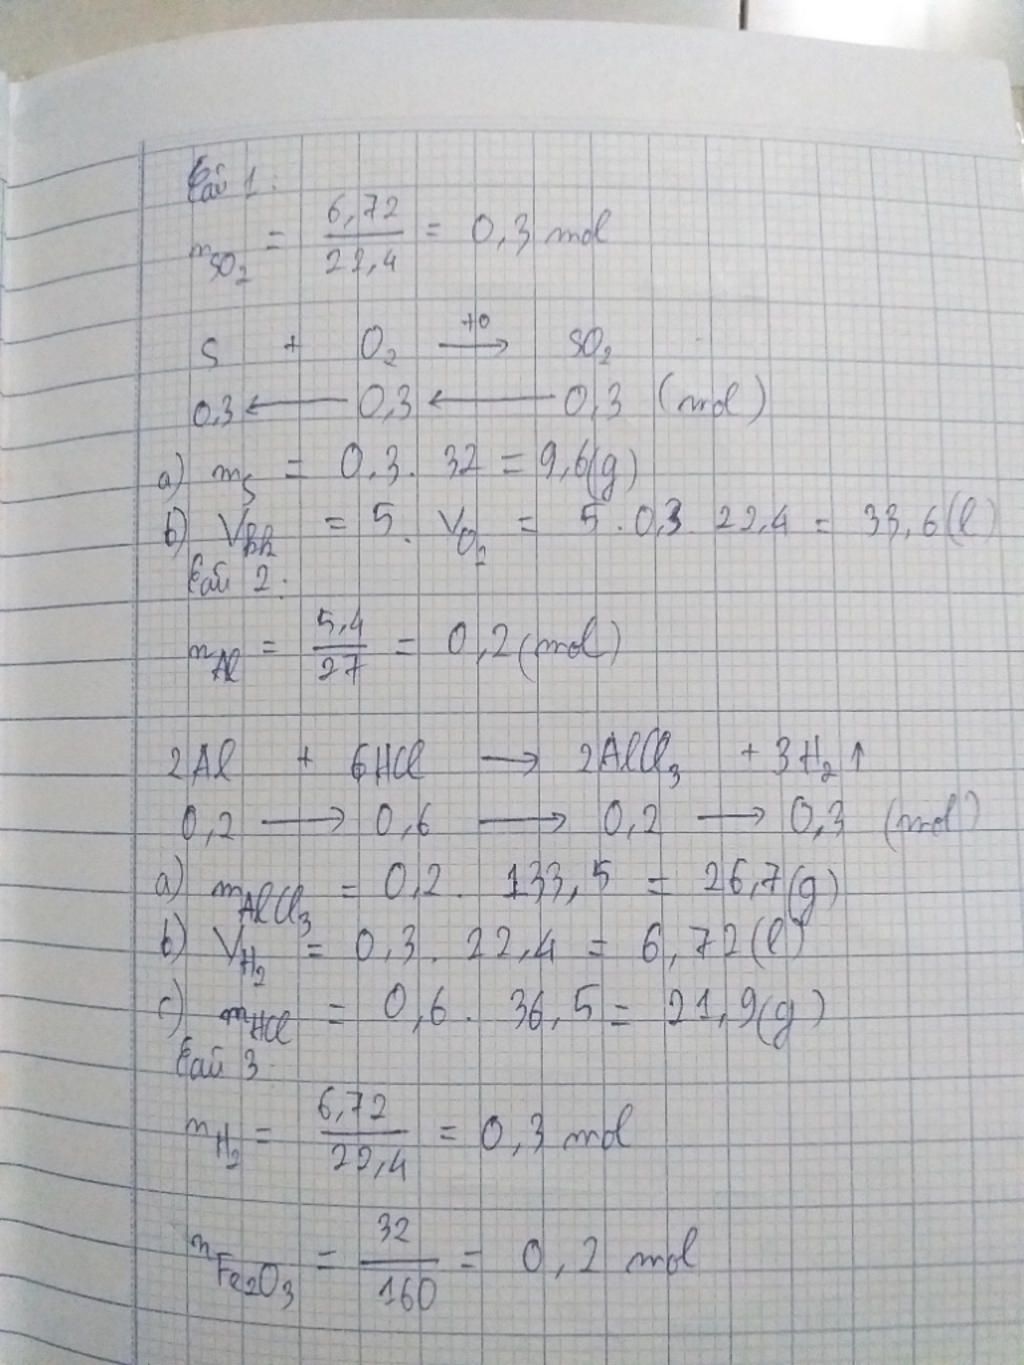 Bài 1:
n_SO2 = 6,72/22,4 = 0,3 mol
S + O2 →(to) SO2
0,3 ← 0,3 ← 0,3 (mol)
a) mS = 0,3 . 32 = 9,6(g)
b) Vkk = 5 . VO2 = 5 . 0,3 . 22,4 = 33,6(l)
Bài 2:
nAl = 5,4/27 = 0,2(mol)
2Al + 6HCl → 2AlCl3 + 3H2↑
0,2 → 0,6 → 0,2 → 0,3 (mol)
a) mAlCl3 = 0,2 . 133,5 = 26,7(g)
b) VH2 = 0,3 . 22,4 = 6,72(l)
c) mHCl = 0,6 . 36,5 = 21,9(g)
Bài 3
nH2 = 6,72/22,4 = 0,3 mol
nFe2O3 = 32/160 = 0,2 mol